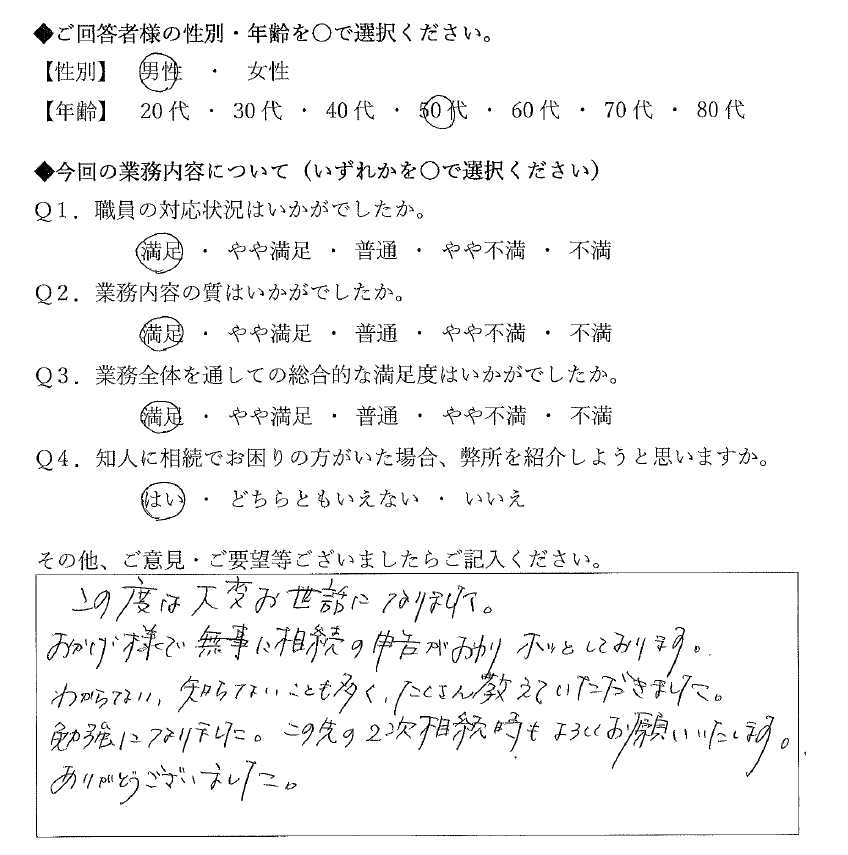 ◆ご回答者様の性別・年齢を○で選択ください。
【性別】 男性 ・ 女性
【年齢】 20代 ・ 30代 ・ 40代 ・ 50代 ・ 60代 ・ 70代 ・ 80代
◆今回の業務内容について（いずれかを○で選択ください）
Q1．職員の対応状況はいかがでしたか。
満足 ・ やや満足 ・ 普通 ・ やや不満 ・ 不満
Q2．業務内容の質はいかがでしたか。
満足 ・ やや満足 ・ 普通 ・ やや不満 ・ 不満
Q3．業務全体を通しての総合的な満足度はいかがでしたか。
満足 ・ やや満足 ・ 普通 ・ やや不満 ・ 不満
Q4．知人に相続でお困りの方がいた場合、弊所を紹介しようと思いますか。
はい ・ どちらともいえない ・ いいえ
その他、ご意見・ご要望等ございましたらご記入ください。
この度は大変お世話になりまして。
おかげ様で無事に相続の申告がおわりホッとしております。
わからない、知らないことも多く、たくさん教えていただきました。
勉強になりました。この先の2次相続時もよろしくお願いいたします。
ありがとうございました。